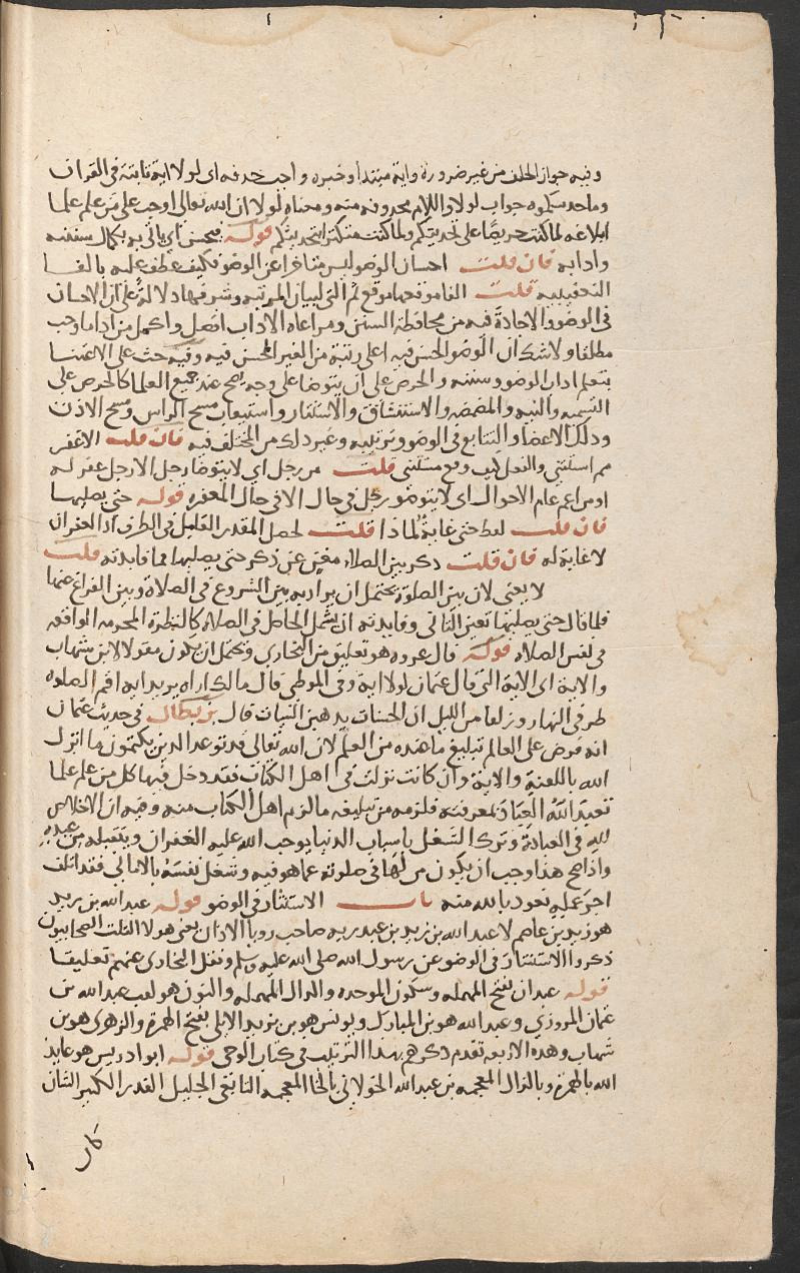 وفيه جواز الحلف من غير ضرورة واية مبتدأ وخبره واجب حذفه اى لولا اية ثابتة فى القران
وما حدثتكموه جواب لولا واللام محذوفة منه ومعناه لولا ان الله تعالى اوجب على من علم علما
ابلاغه لما كنت حريصا على تحديثكم ولما كنت متكثرا بتحديثكم قوله فيحسن اي ياتي به بكمال سننه
وادابه فان قلت احسان الوضو ليس متاخرا عن الوضو فكيف عطف عليه بالفا
التعقيبيه قلت الفا موقعها موقع ثم التى لبيان المرتبه وشرفها دلالة على ان الاحسان
فى الوضو والاجادة فيه من محافظة السنن ومراعاه الاداب افضل واكمل من ادا ما وجب
مطلقا ولا شك ان الوضو الحسن فيه اعلى رتبة من الغير المحسن فيه وفيه حث على الاعتنا
بتعلم اداب الوضو وسننه والحرص على ان يتوضا على وجه يصح عند جميع العلما كالحرص على
التسميه والنيه والمضمضه والاستنشاق والاستنثار واستيعاب مسح الراس ومسح الاذن
ودلك الاعضا والتتابع فى الوضو وترتيبه وغير ذلك من المختلف فيه فان قلت الا غفر
مم استثنى والفعل كيف وقع مستثنى قلت من رجل اي لا يتوضا رجل الا رجل غفر له
او من اعم عام الاحوال اى لا يتوضو رجل فى حال الا فى حال المغفره قوله حتى يصليها
فان قلت لفظ حتى غاية لماذا قلت لحصل المقدر العامل فى الظرف اذ الغفران
لا غاية له فان قلت ذكر بين الصلاه مغن عن ذكر حتى يصليها فما فايدته قلت
لا يغنى لان بين الصلوة يحتمل ان يراد به بين الشروع فى الصلاة وبين الفراغ عنها
فلما قال حتى يصليها تعين الثانى وفايدته ان يشمل الحاصل فى الصلاه كالنظرة المحرمه الواقعه
فى نفس الصلاه قوله قال عروه هو تعليق من البخاري ويحتمل ان يكون مقولا لابن شهاب
والاية اى الاية التى قال عثمان لولا اية وفى الموطى قال مالك اراه يريد اية اقم الصلوه
طرفى النهار وزلفا من الليل ان الحسنات يذهبن السيات قال بن بطال فى حديث عثمان
انه فرض على العالم تبليغ ما عنده من العلم لان الله تعالى قد توعد الذين يكتمون ما انزل
الله باللعنة والاية وان كانت نزلت فى اهل الكتاب فقد دخل فيها كل من علم علما
تعبد الله العباد بمعرفته فلزمه من تبليغه ما لزم اهل الكتاب منه وفيه ان الاخلاص
لله فى العبادة وترك الشغل باسباب الدنيا يوجب الله عليه الغفران ويتقبله من عبده
واذا صح هذا وجب ان يكون من لها فى صلوته عما هو فيه وشغل نفسه بالامانى فقد اتلف
اجر عمله نعوذ بالله منه باب الاستنثار فى الوضو قوله عبد الله بن زيد
هو زيد بن عاصم لا عبد الله بن زيد بن عبد ربه صاحب رويا الاذان يعنى هولا الثلث الصحابيون
ذكروا الاستنثار فى الوضو عن رسول الله صلى الله عليه وسلم ونقل البخارى عنهم تعليقا
قوله عبدان بفتح المهمله وسكون الموحده والدال المهمله والنون هو لقب عبد الله بن
عثمان المروزي وعبد الله هو بن المبارك ويونس هو بن يزيد الايلى بفتح الهمزة والزهرى هو بن
شهاب وهذه الاربعه تقدم ذكرهم بهذا الترتيب فى كتاب الوحى قوله ابو ادريس هو عايذ
الله بالهمزة وبالذال المعجمه بن عبد الله الخولانى بالخا المعجمه التابعى الجليل القدر الكبير الشان
كان